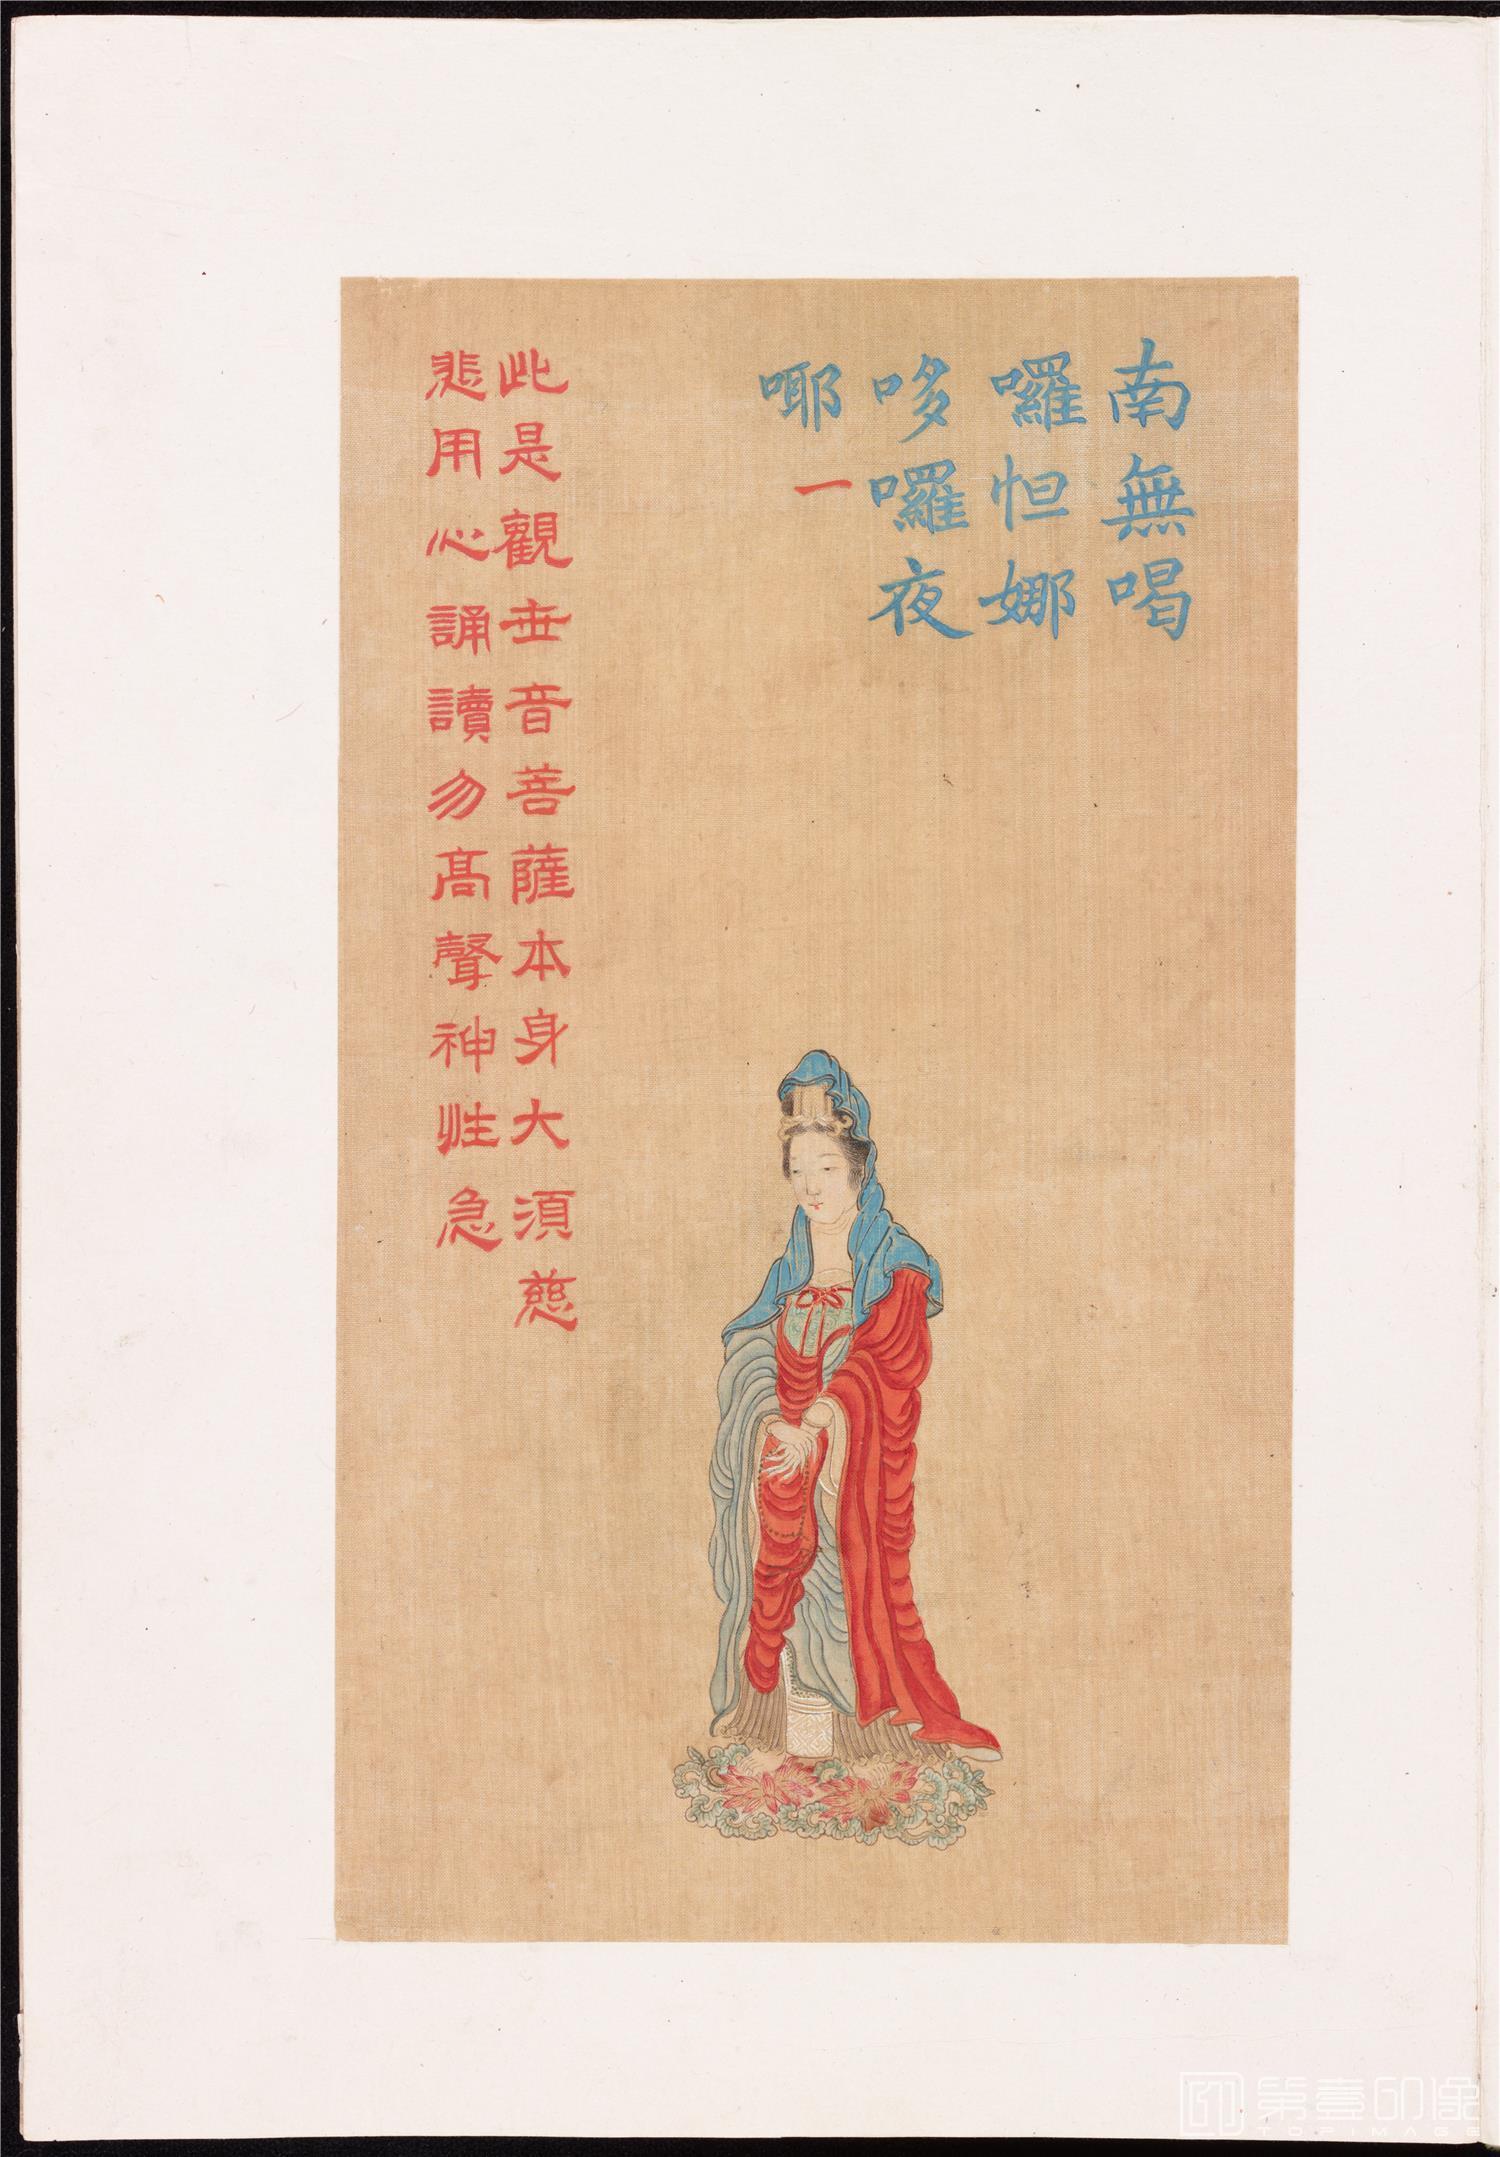 南無喝
囉怛娜
哆囉夜
耶一
此是觀世音菩薩本身大須慈
悲用心誦讀勿高聲神性急
第壹印像
TOPIMAGE